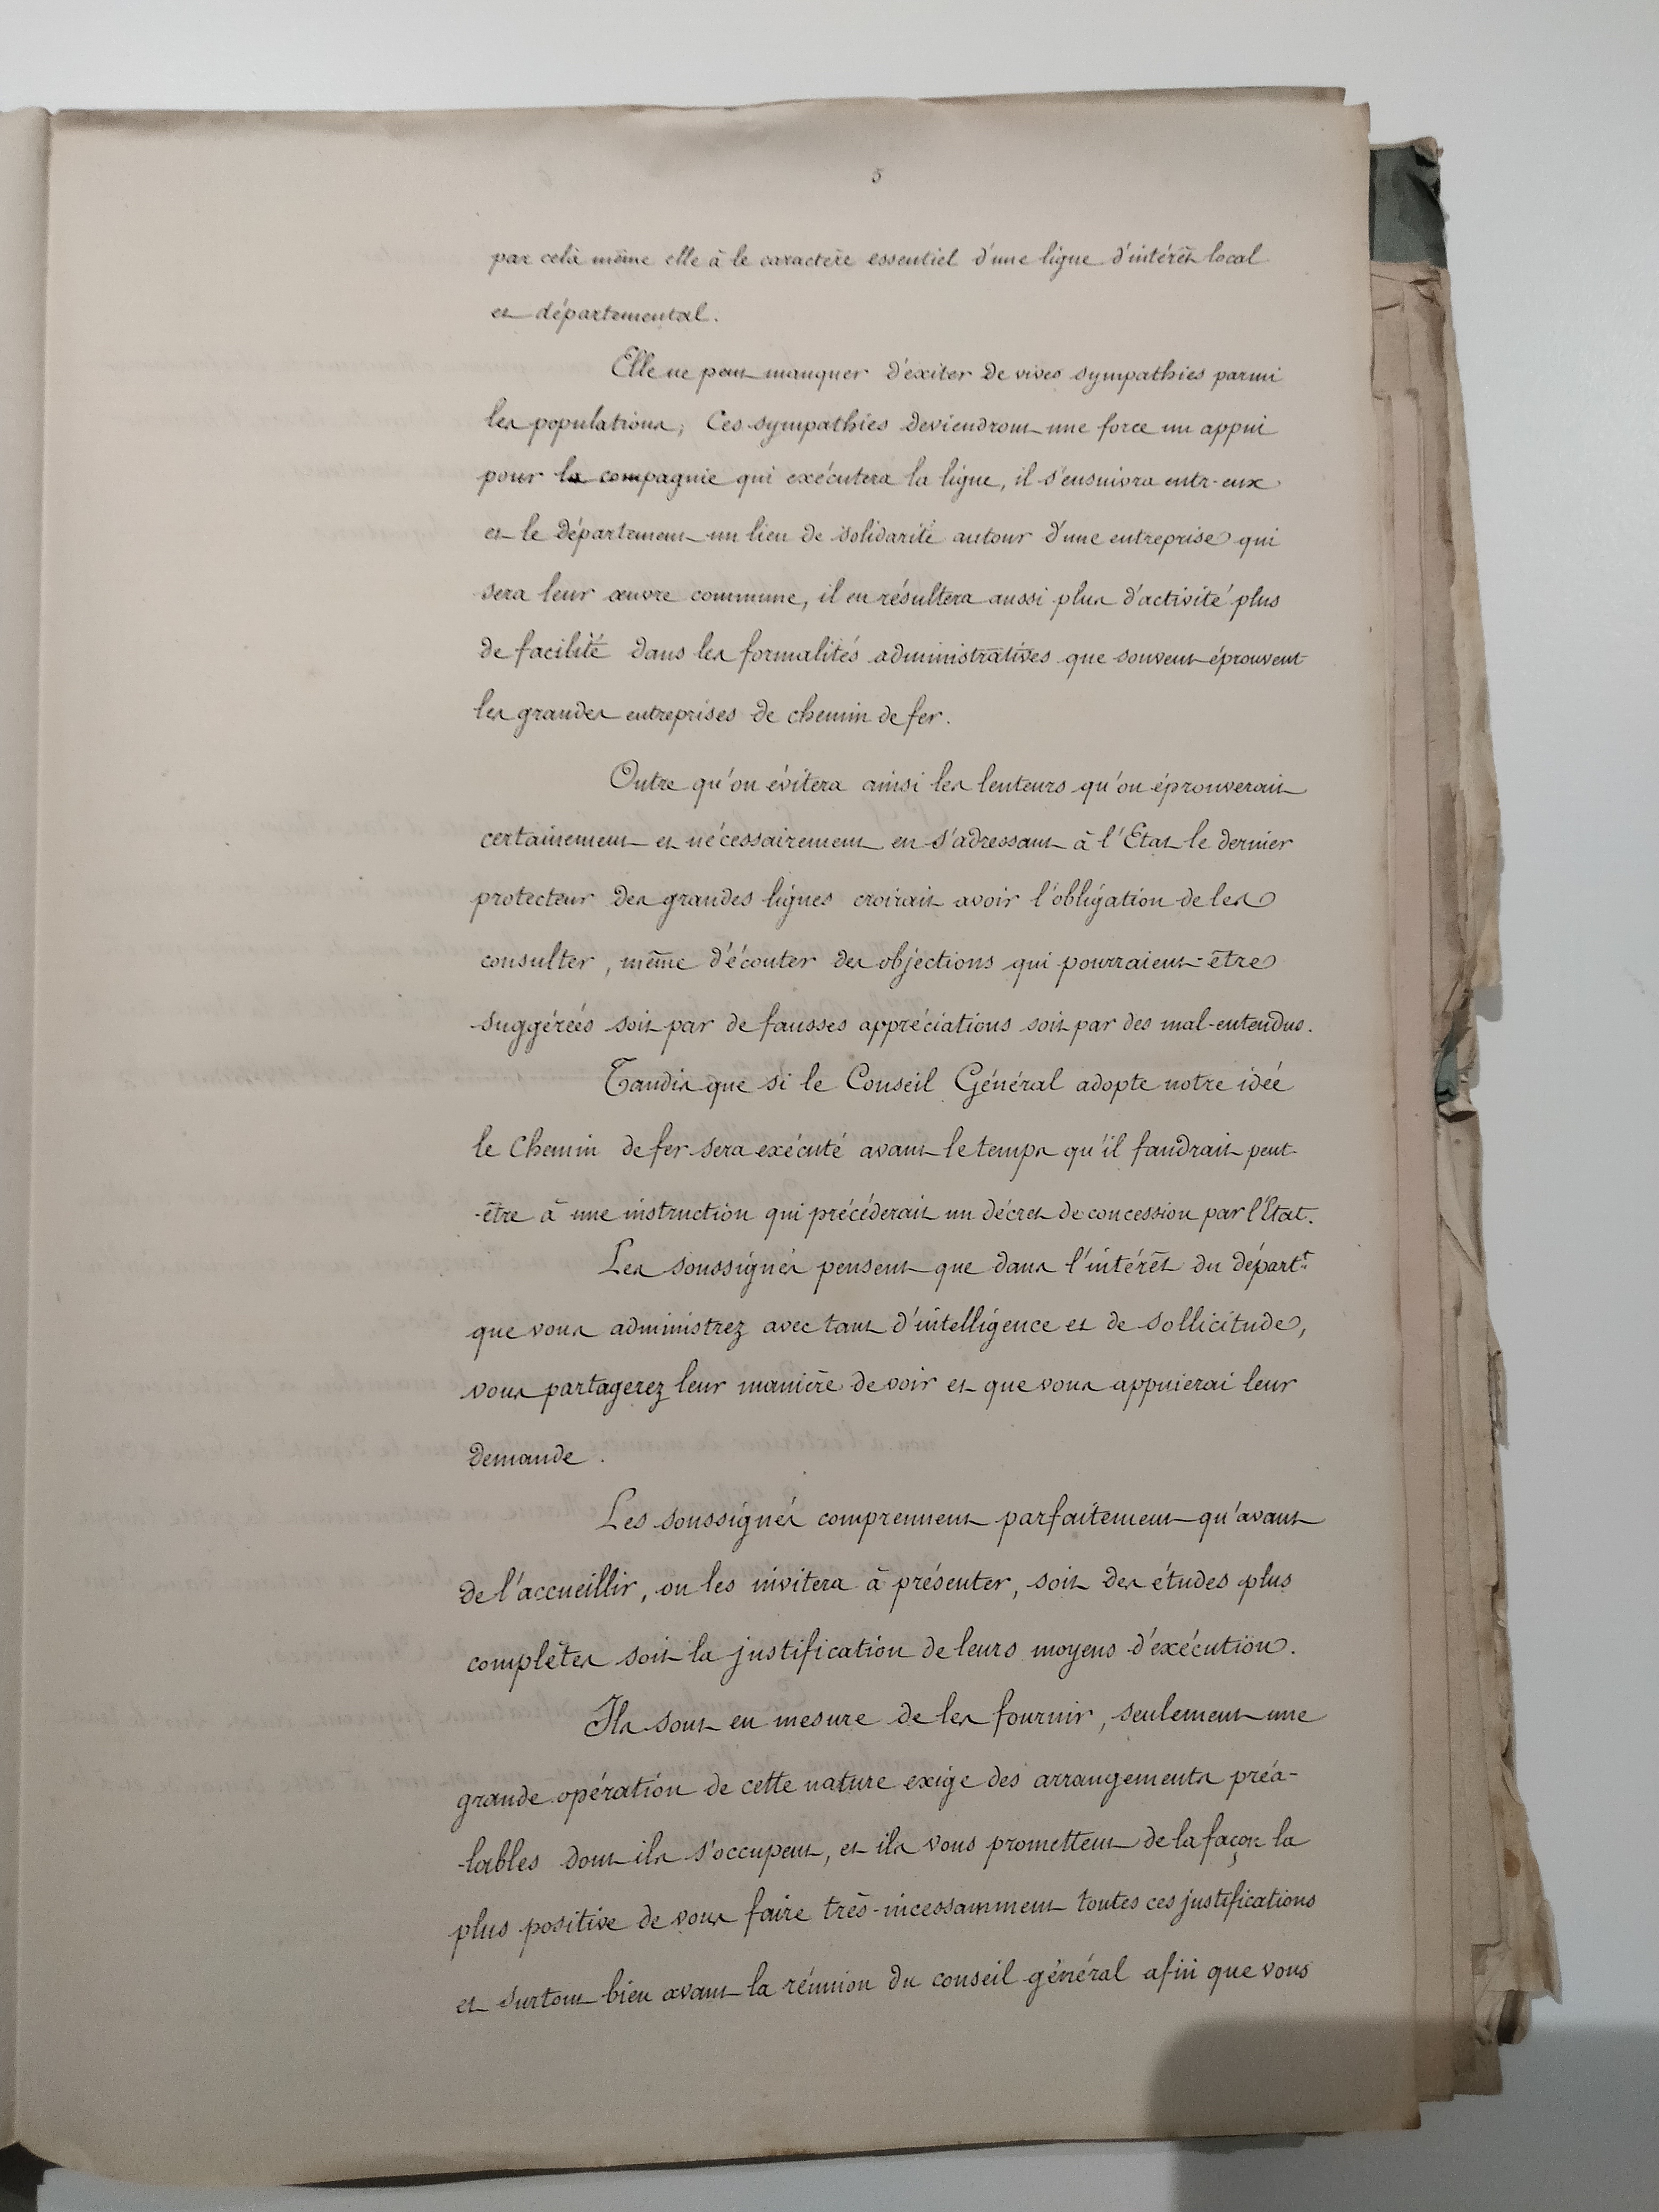 5
par celà même elle à le caractère essentiel d'une ligne d'intérêt local
et départemental.
Elle ne peut manquer d'éxiter de vives sympathies parmi
les populations; Ces sympathies deviendront une force un appui
pour la compagnie qui exécutera la ligne, il s'ensuivra entr-eux
et le département un lien de solidarité autour d'une entreprise qui
sera leur œuvre commune, il en résultera aussi plus d'activité plus
de facilité dans les formalités administratives que souvent éprouvent
les grandes entreprises de chemin de fer.
Outre qu'on évitera ainsi les lenteurs qu'on éprouverait
certainement et nécessairement en s'adressant à l'Etat le dernier
protecteur des grandes lignes croirait avoir l'obligation de les
consulter, même d'écouter des objections qui pourraient-être
suggérées soit par de fausses appréciations soit par des mal-entendus.
Tandis que si le Conseil Général adopte notre idée
le Chemin de fer sera exécuté avant le temps qu'il faudrait peut-
-être à une instruction qui précéderait un décret de concession par l'Etat.
Les soussignés pensent que dans l'intérêt du départt.
que vous administrez avec tant d'intelligence et de sollicitude,
vous partagerez leur manière de voir et que vous appuierai leur
demande.
Les soussignés comprennent parfaitement qu'avant
de l'accueillir, on les invitera à présenter, soit des études plus
complètes soit la justification de leurs moyens d'exécution.
Ils sont en mesure de les fournir, seulement une
grande opération de cette nature exige des arrangements préa-
-lables dont ils s'occupent, et ils vous promettent de la façon la
plus positive de vous faire très-incessamment toutes ces justifications
et surtout bien avant la réunion du conseil général afin que vous